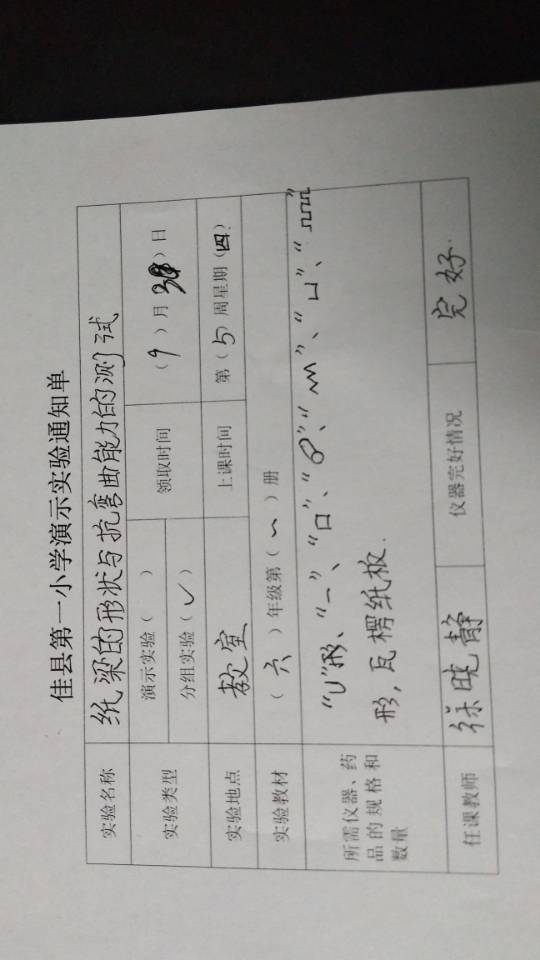 佳县第一小学演示实验通知单
实验名称 纸梁的形状与抗弯曲能力的测试
实验类型 演示实验( ) 领取时间 (9)月()日
分组实验(✓)
实验地点 教室 上课时间 第(5)周星期(四)
实验教材 (六)年级第(一)册
所需仪器、药品的规格和数量 “U”形、“一”、“口”、
形,瓦楞纸板.
任课教师 徐晓静 仪器完好情况 完好.